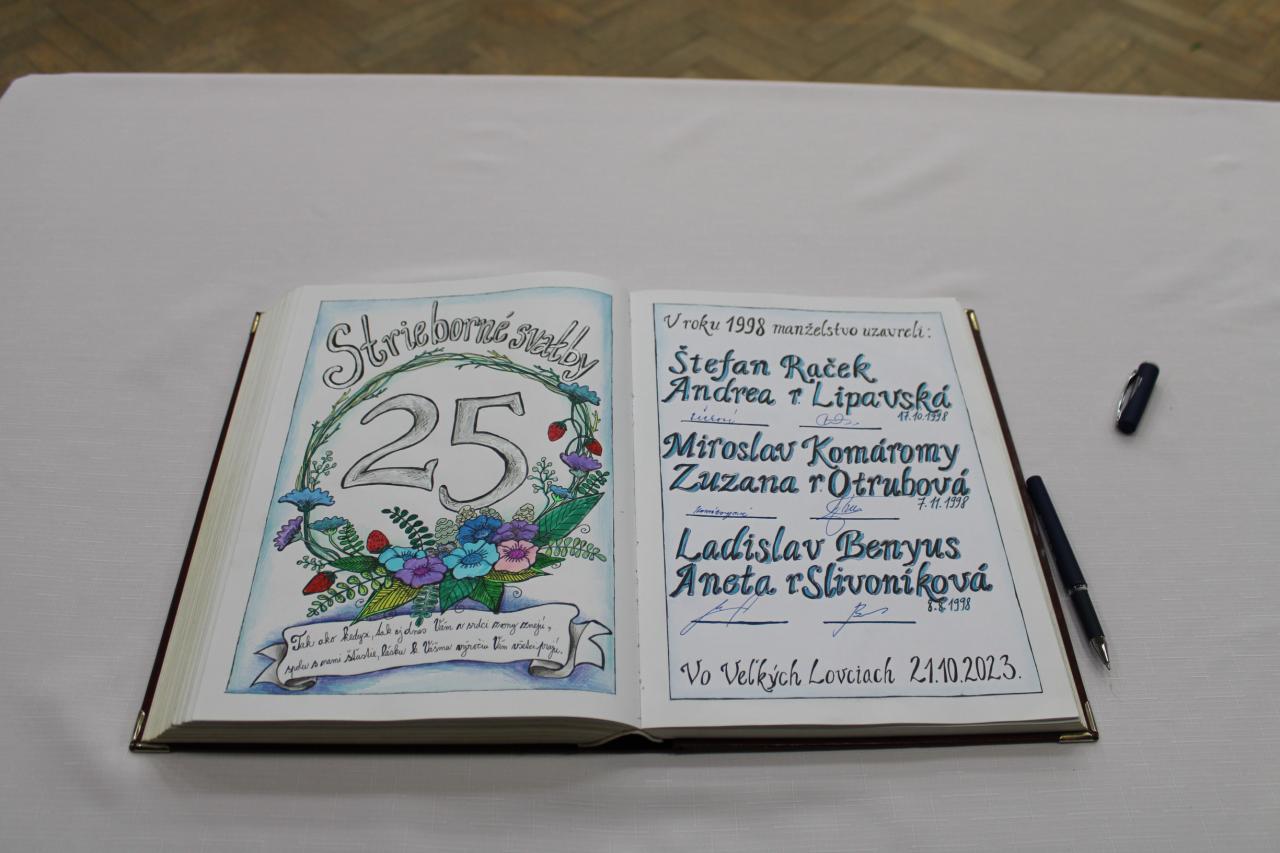 Strieborné svatby
25
Tak ako kedysi, tak aj dnes Vám v srdci zvony znejú,
spolu s nami šťastie, lásku k Vášmu výročiu Vám všetci prajú.
V roku 1998 manželstvo uzavreli:
Štefan Raček
Andrea r. Lipavská
17.10.1998
Miroslav Komáromy
Zuzana r. Otrubová
7.11.1998
Ladislav Benyus
Aneta r Slivoniková
8.8.1998
Vo Veľkých Lovciach 21.10.2023.